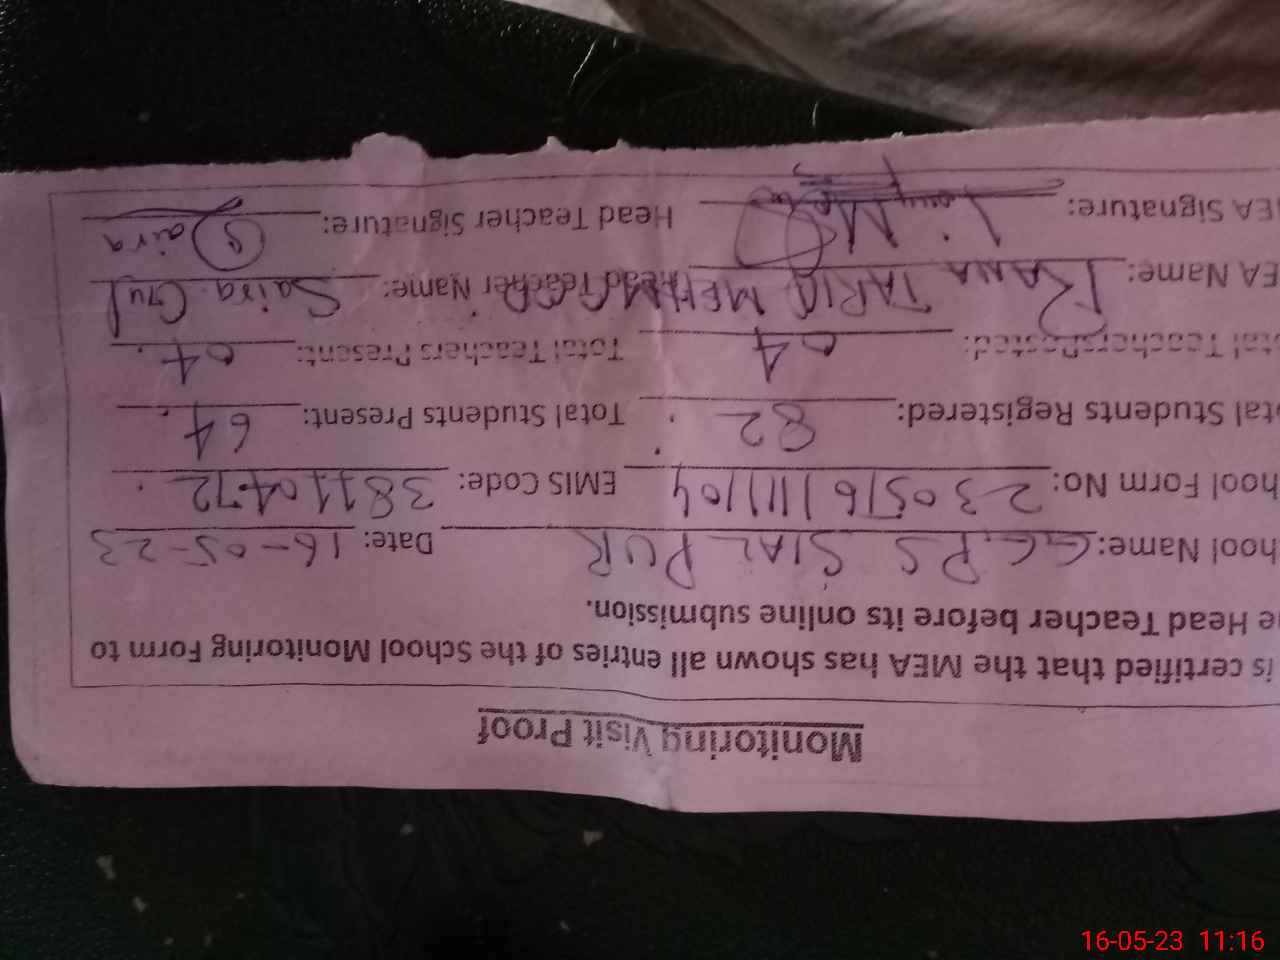 Monitoring Visit Proof
is certified that the MEA has shown all entries of the School Monitoring Form to
e Head Teacher before its online submission.
hool Name: G.G.P.S SIAL PUR Date: 16-05-23
hool Form No: 230516111104 EMIS Code: 38110472
tal Students Registered: 82 Total Students Present: 64
tal Teachers Posted: 04 Total Teachers Present: 04
EA Name: RANA TARIQ Head Teacher Name: Saira Gul
EA Signature: Head Teacher Signature: Saira
16-05-23 11:16